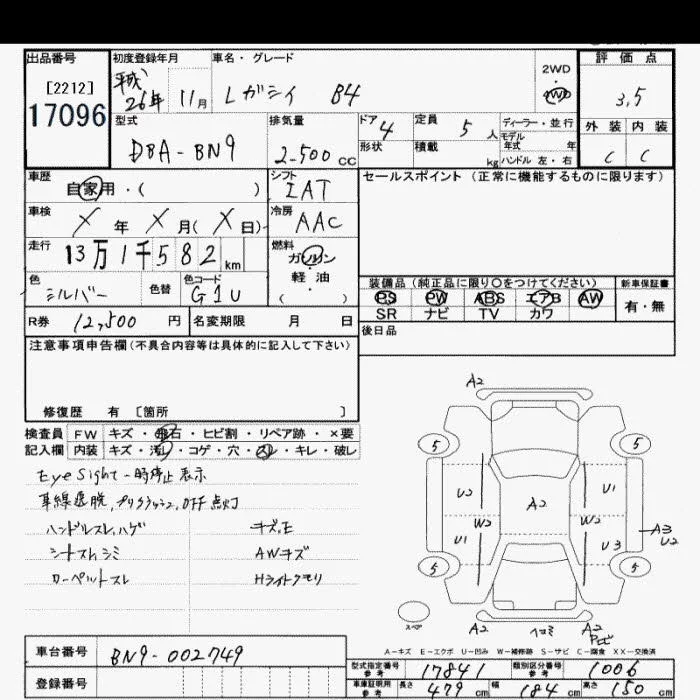 出品番号 初度登録年月 車名・グレード 評価点
[2212] 平成 26年 11月 Lガシィ B4 2WD 4WD 3.5
17096
型式 排気量 ドア 4 定員 5人 ディーラー・並行 外装 内装
DBA-BN9 2-500 cc 形状 積載 kg モデル年式 年 C C
ハンドル 左・右
車歴 自家用・( ) シフト IAT セールスポイント(正常に機能するものに限ります)
車検 X年 X月(X日) 冷房 AAC
走行 13万1千582km 燃料 ガソリン
軽・油
( )
色 シルバー 色替 色コード G1U
装備品(純正品に限り○をつけてください) 新車保証書
PS PW ABS エアB AW 有・無
SR ナビ TV カワ
R券 12,500円 名変期限 月 日 後日品
注意事項申告欄(不具合内容等は具体的に記入して下さい)
修復歴 有 [箇所 ]
検査員 FW キズ・飛石・ヒビ割・リペア跡・×要
記入欄 内装 キズ・汚レ・コゲ・穴・スレ・キレ・破レ
EyeSight一時停止表示
車線逸脱, プリクラッシュ, OFF点灯
ハンドルスレ, ハゲ キズ,E
シートスレ, シミ AWキズ
ローペルトスレ Hライトクモリ
A2
5 5
U2 U1
A2
W2 W2
U1 U3
A3
U2
5 5
スペア
A2 ヨゴミ A2
A-キズ E-エクボ U-凹み W-補修跡 S-サビ C-腐食 XX-交換済
車台番号 BN9-002749
登録番号
型式指定番号 参考 17841 類別区分番号 参考 1006
車庫証明用 参考 長さ 479cm 幅 184cm 高さ 150cm